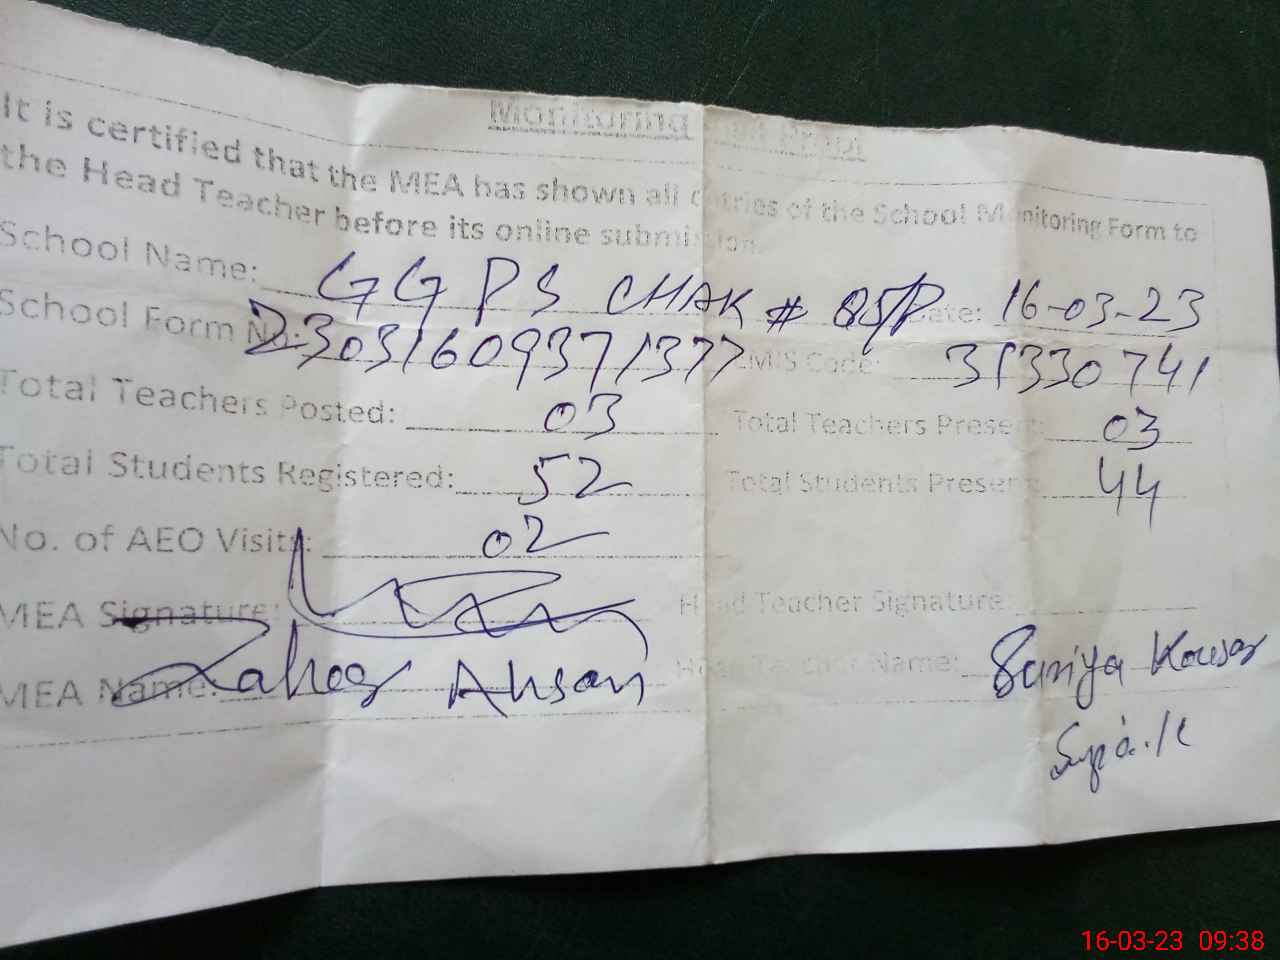 Monitoring Visit Proof
It is certified that the MEA has shown all entries of the School Monitoring Form to
the Head Teacher before its online submission.
School Name: GGPS CHAK # 85/P Date: 16-03-23
School Form No: 23031609371377 EMIS Code: 31330741
Total Teachers Posted: 03 Total Teachers Present: 03
Total Students Registered: 52 Total Students Present: 44
No. of AEO Visits: 02
MEA Signature: Head Teacher Signature:
MEA Name: Zahoor Ahsan Head Teacher Name: Suniya Kousar
16-03-23 09:38